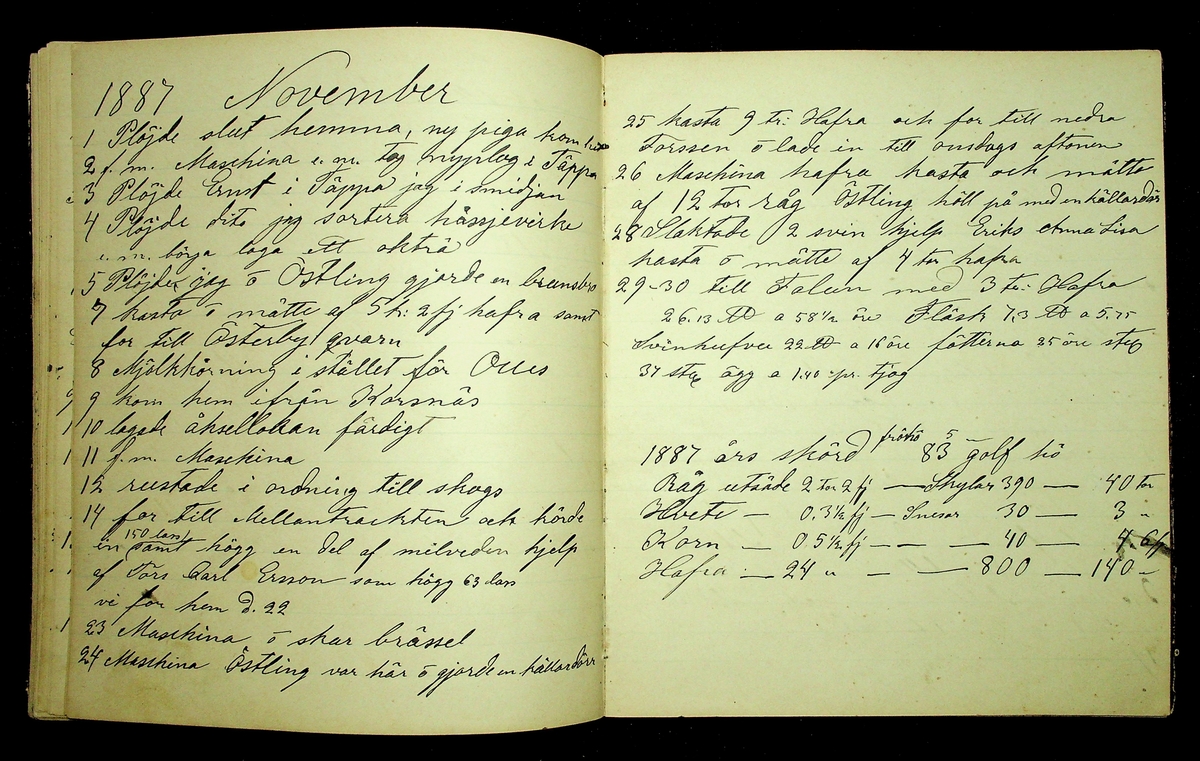 1887 November
1 Plöjde slut hemma, ny piga kom
2 f. m. Maschina e. m. tog nyplog i Täppa
3 Plöjde Ernst i Täppa jag i smidjan
4 Plöjde dito jag sortera hässjevirke
e. m. börja laga ett okträ
5 Plöjde jag ö Östling gjorde en brunsbro
7 kasta ö mätte af 5 tr: 2 fj hafra samt
for till Österby qvarn
8 Mjölkkörning i stället för
9 kom hem ifrån Korsnäs
10 lagade åksellokan färdigt
11 f. m. Maschina
12 rustade i ordning till skogs
14 for till Mellantrackten och körde
150 lass
in samt högg en del af milveden hjelp
af Tors Carl Ersson som högg 63 lass
vi for hem d. 22
23 Maschina ö skar brässel
24 Maschina Östling var här ö gjorde en källardörr
25 kasta 9 tr: Hafra och for till nedra
Forssen ö lade in till onsdags aftonen
26 Maschina hafra kasta och mätte
af 12 tor råg Östling höll på med en källardör
28 Slaktade 2 svin hjelp Eriks Anna Lisa
kasta ö mätte af 4 tor hafra
29-30 till Falun med 3 tr: Hafra
26.13 ℔ a 58 1/2 öre Fläsk 7,3 ℔ a 5.75
Svinhufvu 22 ℔ a 16 öre fötterna 25 öre
37 ägg a 1.40 pr. tjog
1887 års skörd fröhö 5 83 golf hö
Råg utsäde 2 tor 2 fj — Skylar 390 — 40 tor
Hvete — 0.3 1/2 fj — Snesar 30 — 3 "
Korn — 0.5 1/2 fj — — 40 — 4. 6 fj
Hafra — 24 " — — 800 — 140 "